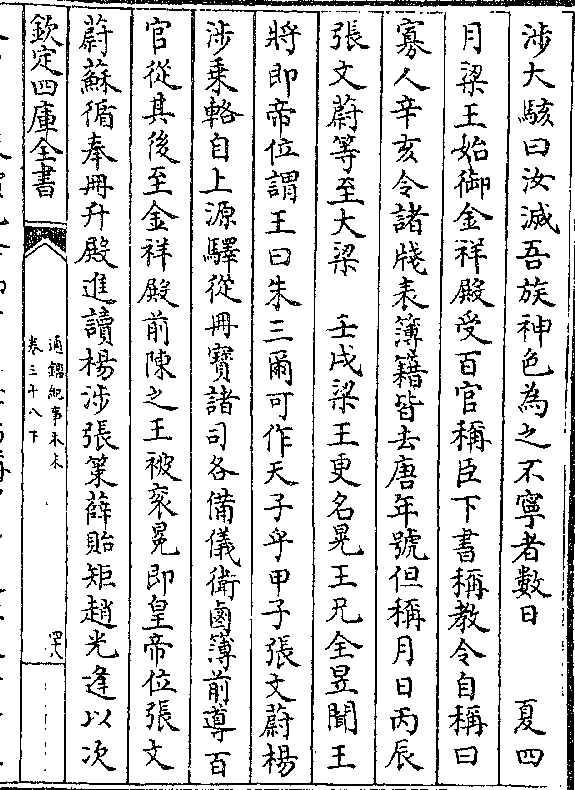 涉大駭曰汝滅吾族神色為之不寧者數日　　夏四
月梁王始御金祥殿受百官稱臣下書稱教令自稱曰
寡人辛亥令諸牋表簿籍皆去唐年號但稱月日丙辰
張文蔚等至大梁　壬戌梁王更名晃王兄全昱聞王
將即帝位謂王曰朱三爾可作天子乎甲子張文蔚楊
涉乗輅自上源驛從冊寳諸司各備儀衛鹵簿前導百
官從其後至金祥殿前陳之王被衮冕即皇帝位張文
蔚蘇循奉冊升殿進讀楊涉張策薛貽矩趙光逢以次
欽定四庫全書
通鑑紀事本末
卷三十八下